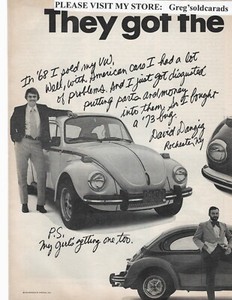 PLEASE VISIT MY STORE: Greg'soldcarads
They got the
In '68 I sold my VW,
Well, with American cars I had a lot
of problems. And I just got disgusted
putting parts and money
into them. So I bought
a '73 bug.
David Danzig
Rochester, NY
P.S.
My girl's getting one, too.